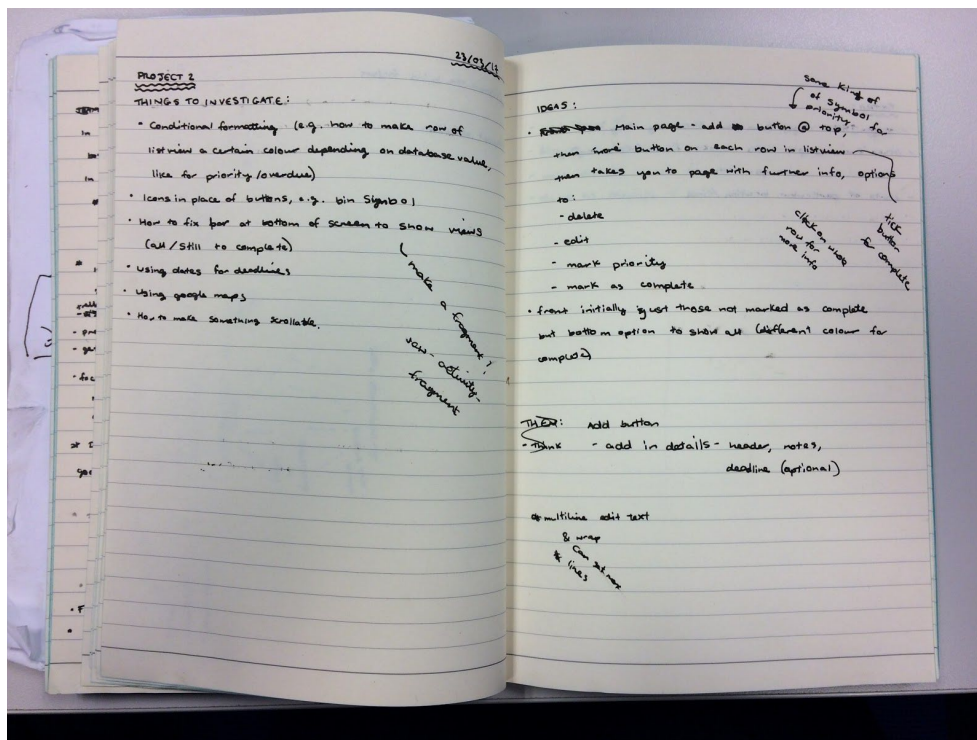 23/03/17
PROJECT 2
THINGS TO INVESTIGATE:
• Conditional formatting (e.g. how to make row of
listview a certain colour depending on database value,
like for priority/overdue)
• Icons in place of buttons, e.g. bin symbol
• How to fix bar at bottom of screen to show views
(all/still to complete)
• Using dates for deadlines
• Using google maps
• How to make something scrollable.
make a fragment?
view-activity-
fragment
IDEAS:
some kind of
of symbol for
priority
• Main page - add button @ top,
then 'more' button on each row in listview
then takes you to page with further info, options
to:
- delete
- edit
- mark priority
- mark as complete
click on whole
row for
more info
tick
button
for complete
• front initially just those not marked as complete
but bottom option to show all (different colour for
complete)
THEN: Add button
- Think - add in details - header, notes,
deadline (optional)
multiline edit text
& wrap
can set max
# lines
In
Im
• F